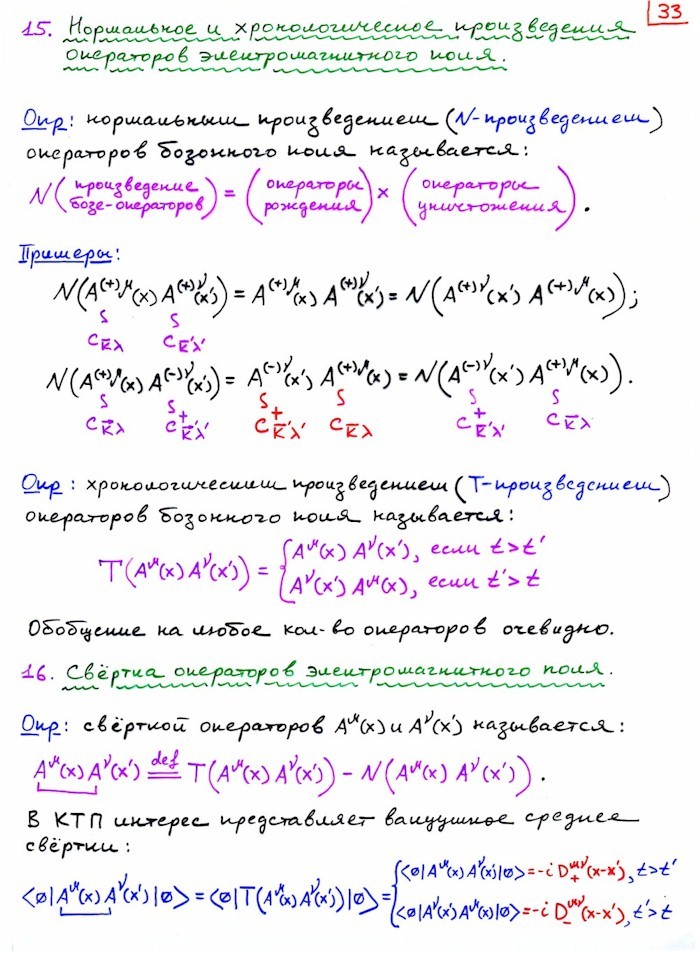 33
15. Нормальное и хронологическое произведения
операторов электромагнитного поля.
Опр: нормальным произведением (N-произведением)
операторов бозонного поля называется:
N(произведение бозе-операторов) = (операторы рождения) × (операторы уничтожения).
Примеры:
N(A⁽⁺⁾ᵘ(x) A⁽⁺⁾ᵛ(x')) = A⁽⁺⁾ᵘ(x) A⁽⁺⁾ᵛ(x') = N(A⁽⁺⁾ᵛ(x') A⁽⁺⁾ᵘ(x));
S S
C_k̄λ C_k̄'λ'
N(A⁽⁺⁾ᵘ(x) A⁽⁻⁾ᵛ(x')) = A⁽⁻⁾ᵛ(x') A⁽⁺⁾ᵘ(x) = N(A⁽⁻⁾ᵛ(x') A⁽⁺⁾ᵘ(x)).
S S S S S S
C_k̄λ C⁺_k̄'λ' C⁺_k̄'λ' C_k̄λ C⁺_k̄'λ' C_k̄λ
Опр: хронологическим произведением (T-произведением)
операторов бозонного поля называется:
T(Aᵘ(x) Aᵛ(x')) = { Aᵘ(x) Aᵛ(x'), если t>t'
Aᵛ(x') Aᵘ(x), если t'>t
Обобщение на любое кол-во операторов очевидно.
16. Свёртка операторов электромагнитного поля.
Опр: свёрткой операторов Aᵘ(x) и Aᵛ(x') называется:
Aᵘ(x) Aᵛ(x') def= T(Aᵘ(x) Aᵛ(x')) − N(Aᵘ(x) Aᵛ(x')).
В КТП интерес представляет вакуумное среднее
свёртки:
<ø|Aᵘ(x) Aᵛ(x')|ø> = <ø|T(Aᵘ(x) Aᵛ(x'))|ø> = { <ø|Aᵘ(x) Aᵛ(x')|ø> = -i D₊ᵘᵛ(x-x'), t>t'
<ø|Aᵛ(x') Aᵘ(x)|ø> = -i D₋ᵘᵛ(x-x'), t'>t